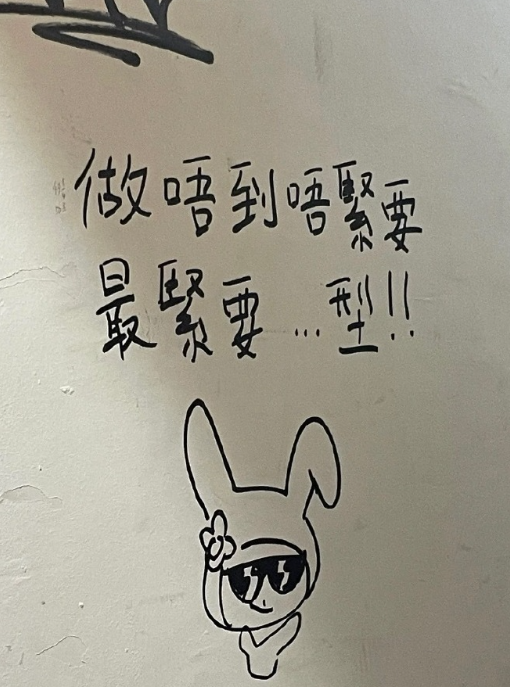 做唔到唔緊要
最緊要...型!!